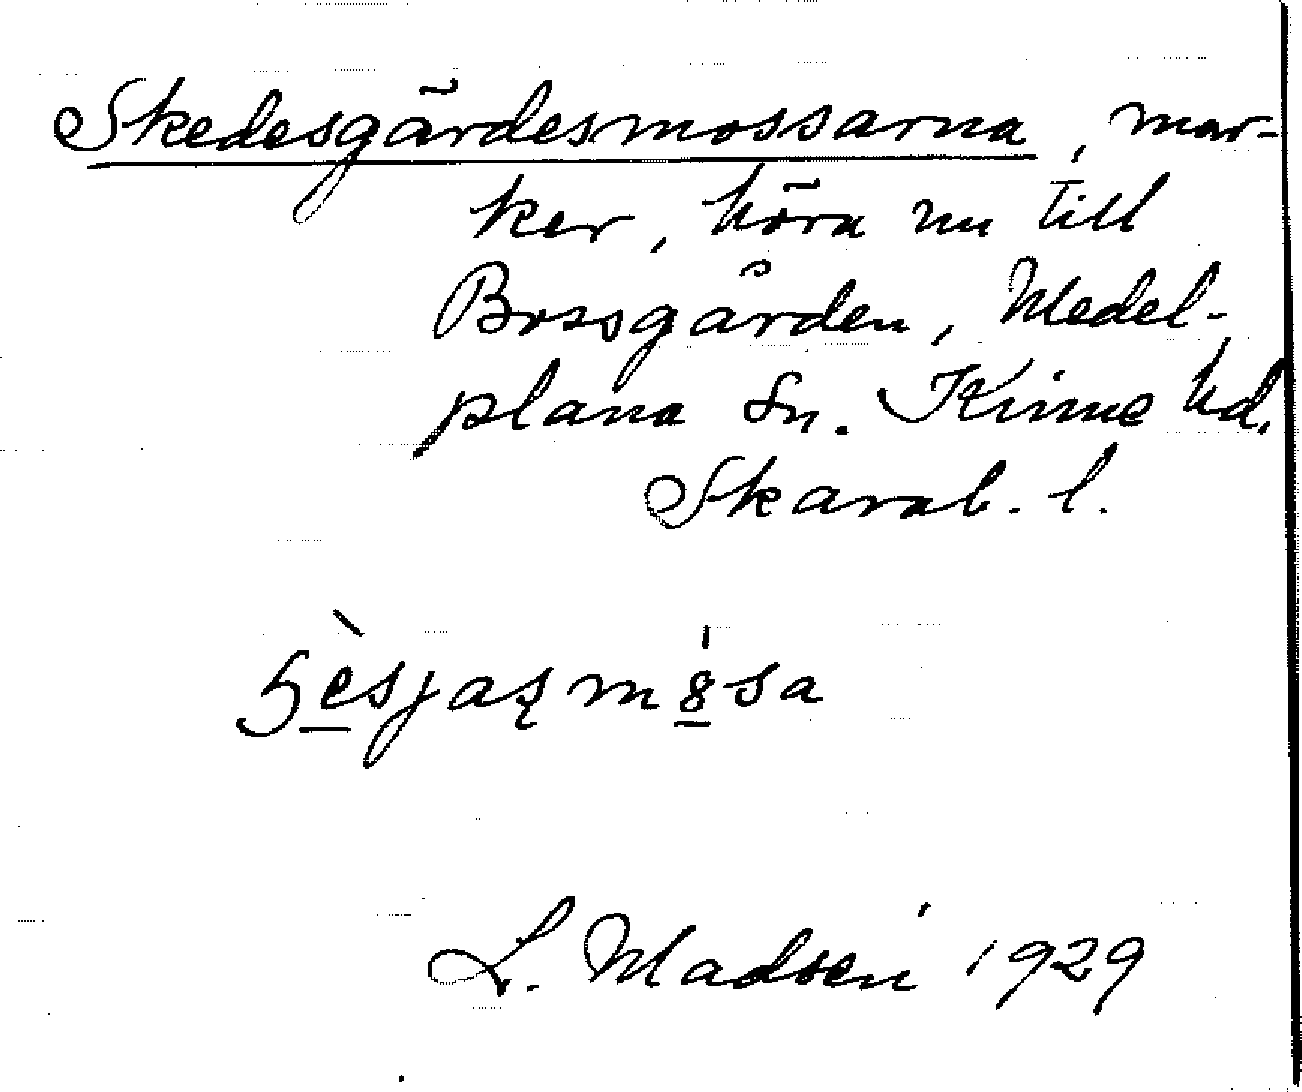 Skedesgärdesmossarna, mar-
ker, höra nu till
Bossgården, Medel-
plana Sn. Kinne hd.
Skarab. l.
L. Madsén 1929